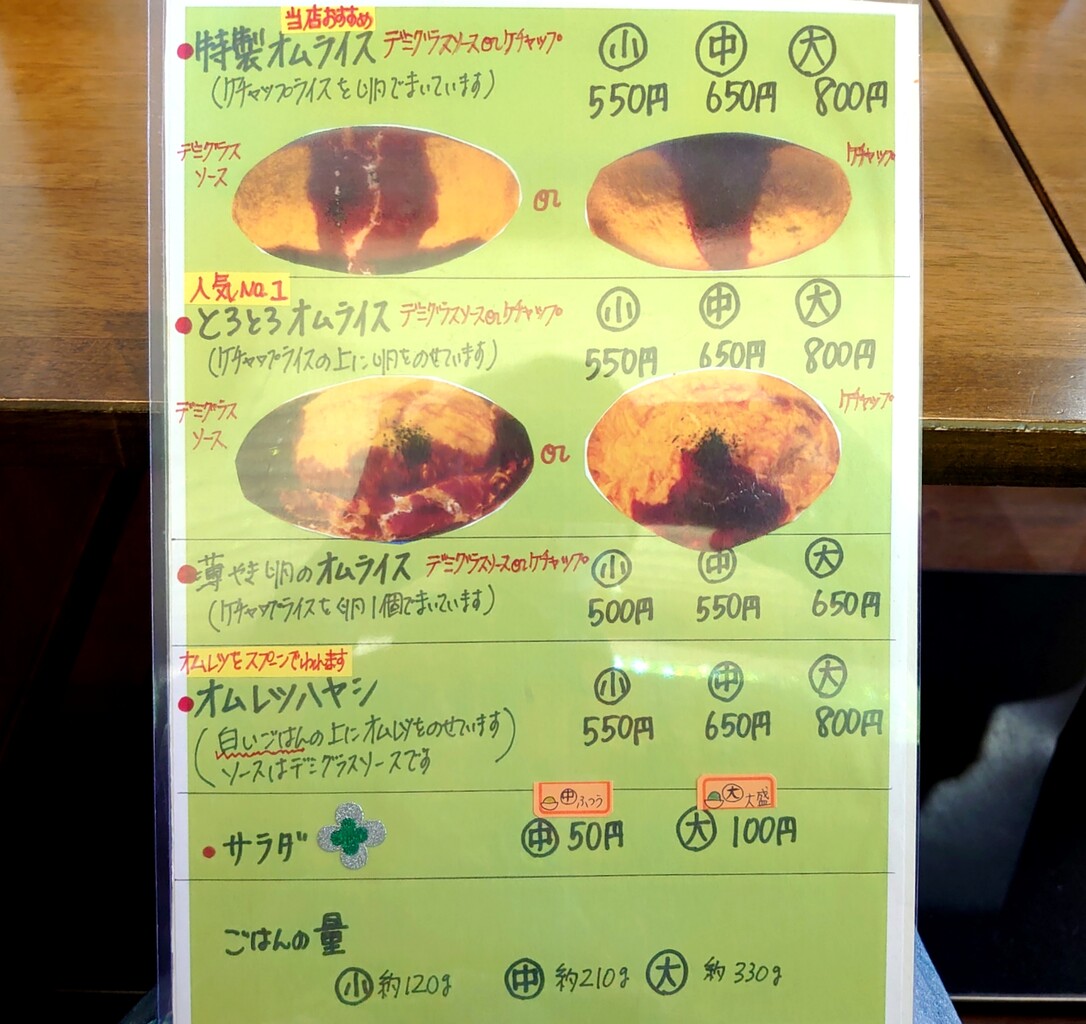 当店おすすめ
•特製オムライス デミグラスソースorケチャップ 小 中 大
(ケチャップライスを卵でまいています) 550円 650円 800円
デミグラス ケチャップ
ソース
or
人気No.1
•とろとろオムライス デミグラスソースorケチャップ 小 中 大
(ケチャップライスの上に卵をのせています) 550円 650円 800円
デミグラス ケチャップ
ソース
or
•薄やき卵のオムライス デミグラスソースorケチャップ 小 中 大
(ケチャップライスを卵1個でまいています) 500円 550円 650円
オムレツをスプーンでわれます
•オムレツハヤシ 小 中 大
(白いごはんの上にオムレツをのせています 550円 650円 800円
ソースはデミグラスソースです)
中ふつう 大大盛
•サラダ 中50円 大100円
ごはんの量
小約120g 中約210g 大約330g